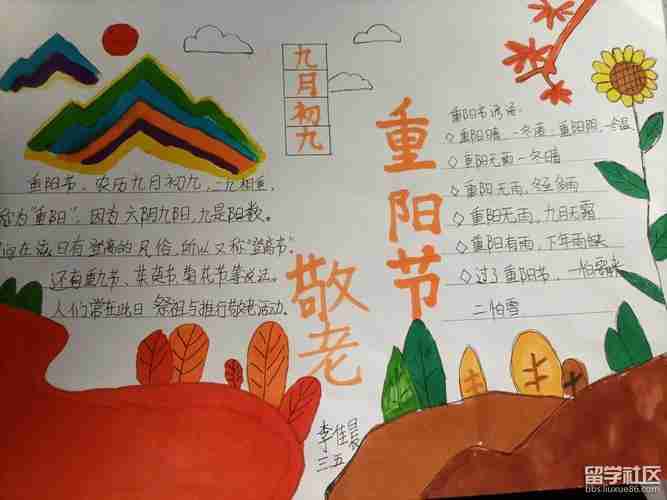 九月初九
重阳节
敬老
重阳节，农历九月初九，二九相重，
称为"重阳"，因为六阴九阳，九是阳数。
在该日有登高的风俗，所以又称"登高节"
还有重九节、茱萸节、菊花节等说法。
人们常在此日祭祖与推行敬老活动。
重阳节谚语：
◇重阳晴，一冬晴；重阳阴，一冬温
◇重阳无雨一冬晴
◇重阳无雨，冬至多雨
◇重阳无雨，九月无霜
◇重阳有雨，下年雨缺
◇过了重阳节，一怕霜来
二怕雪
李佳晨
三五
留学社区
bbs.liuxue86.com